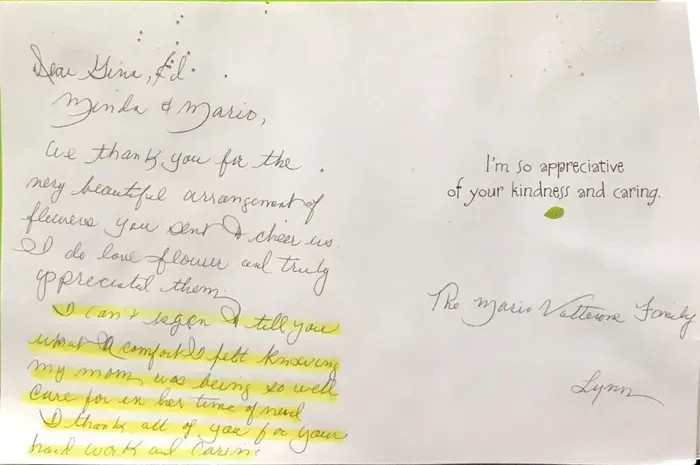 Dear Gina, Ed
Minda & Mario,
We thank you for the
very beautiful arrangement of
flowers you sent to cheer us.
I do love flower and truly
appreciated them.
I can't began to till you
what a comfort I felt knowing
my mom, was being so well
care for in her time of need
I thank all of you for your
hard work and caring
I'm so appreciative
of your kindness and caring.
The Mario Family
Lynn